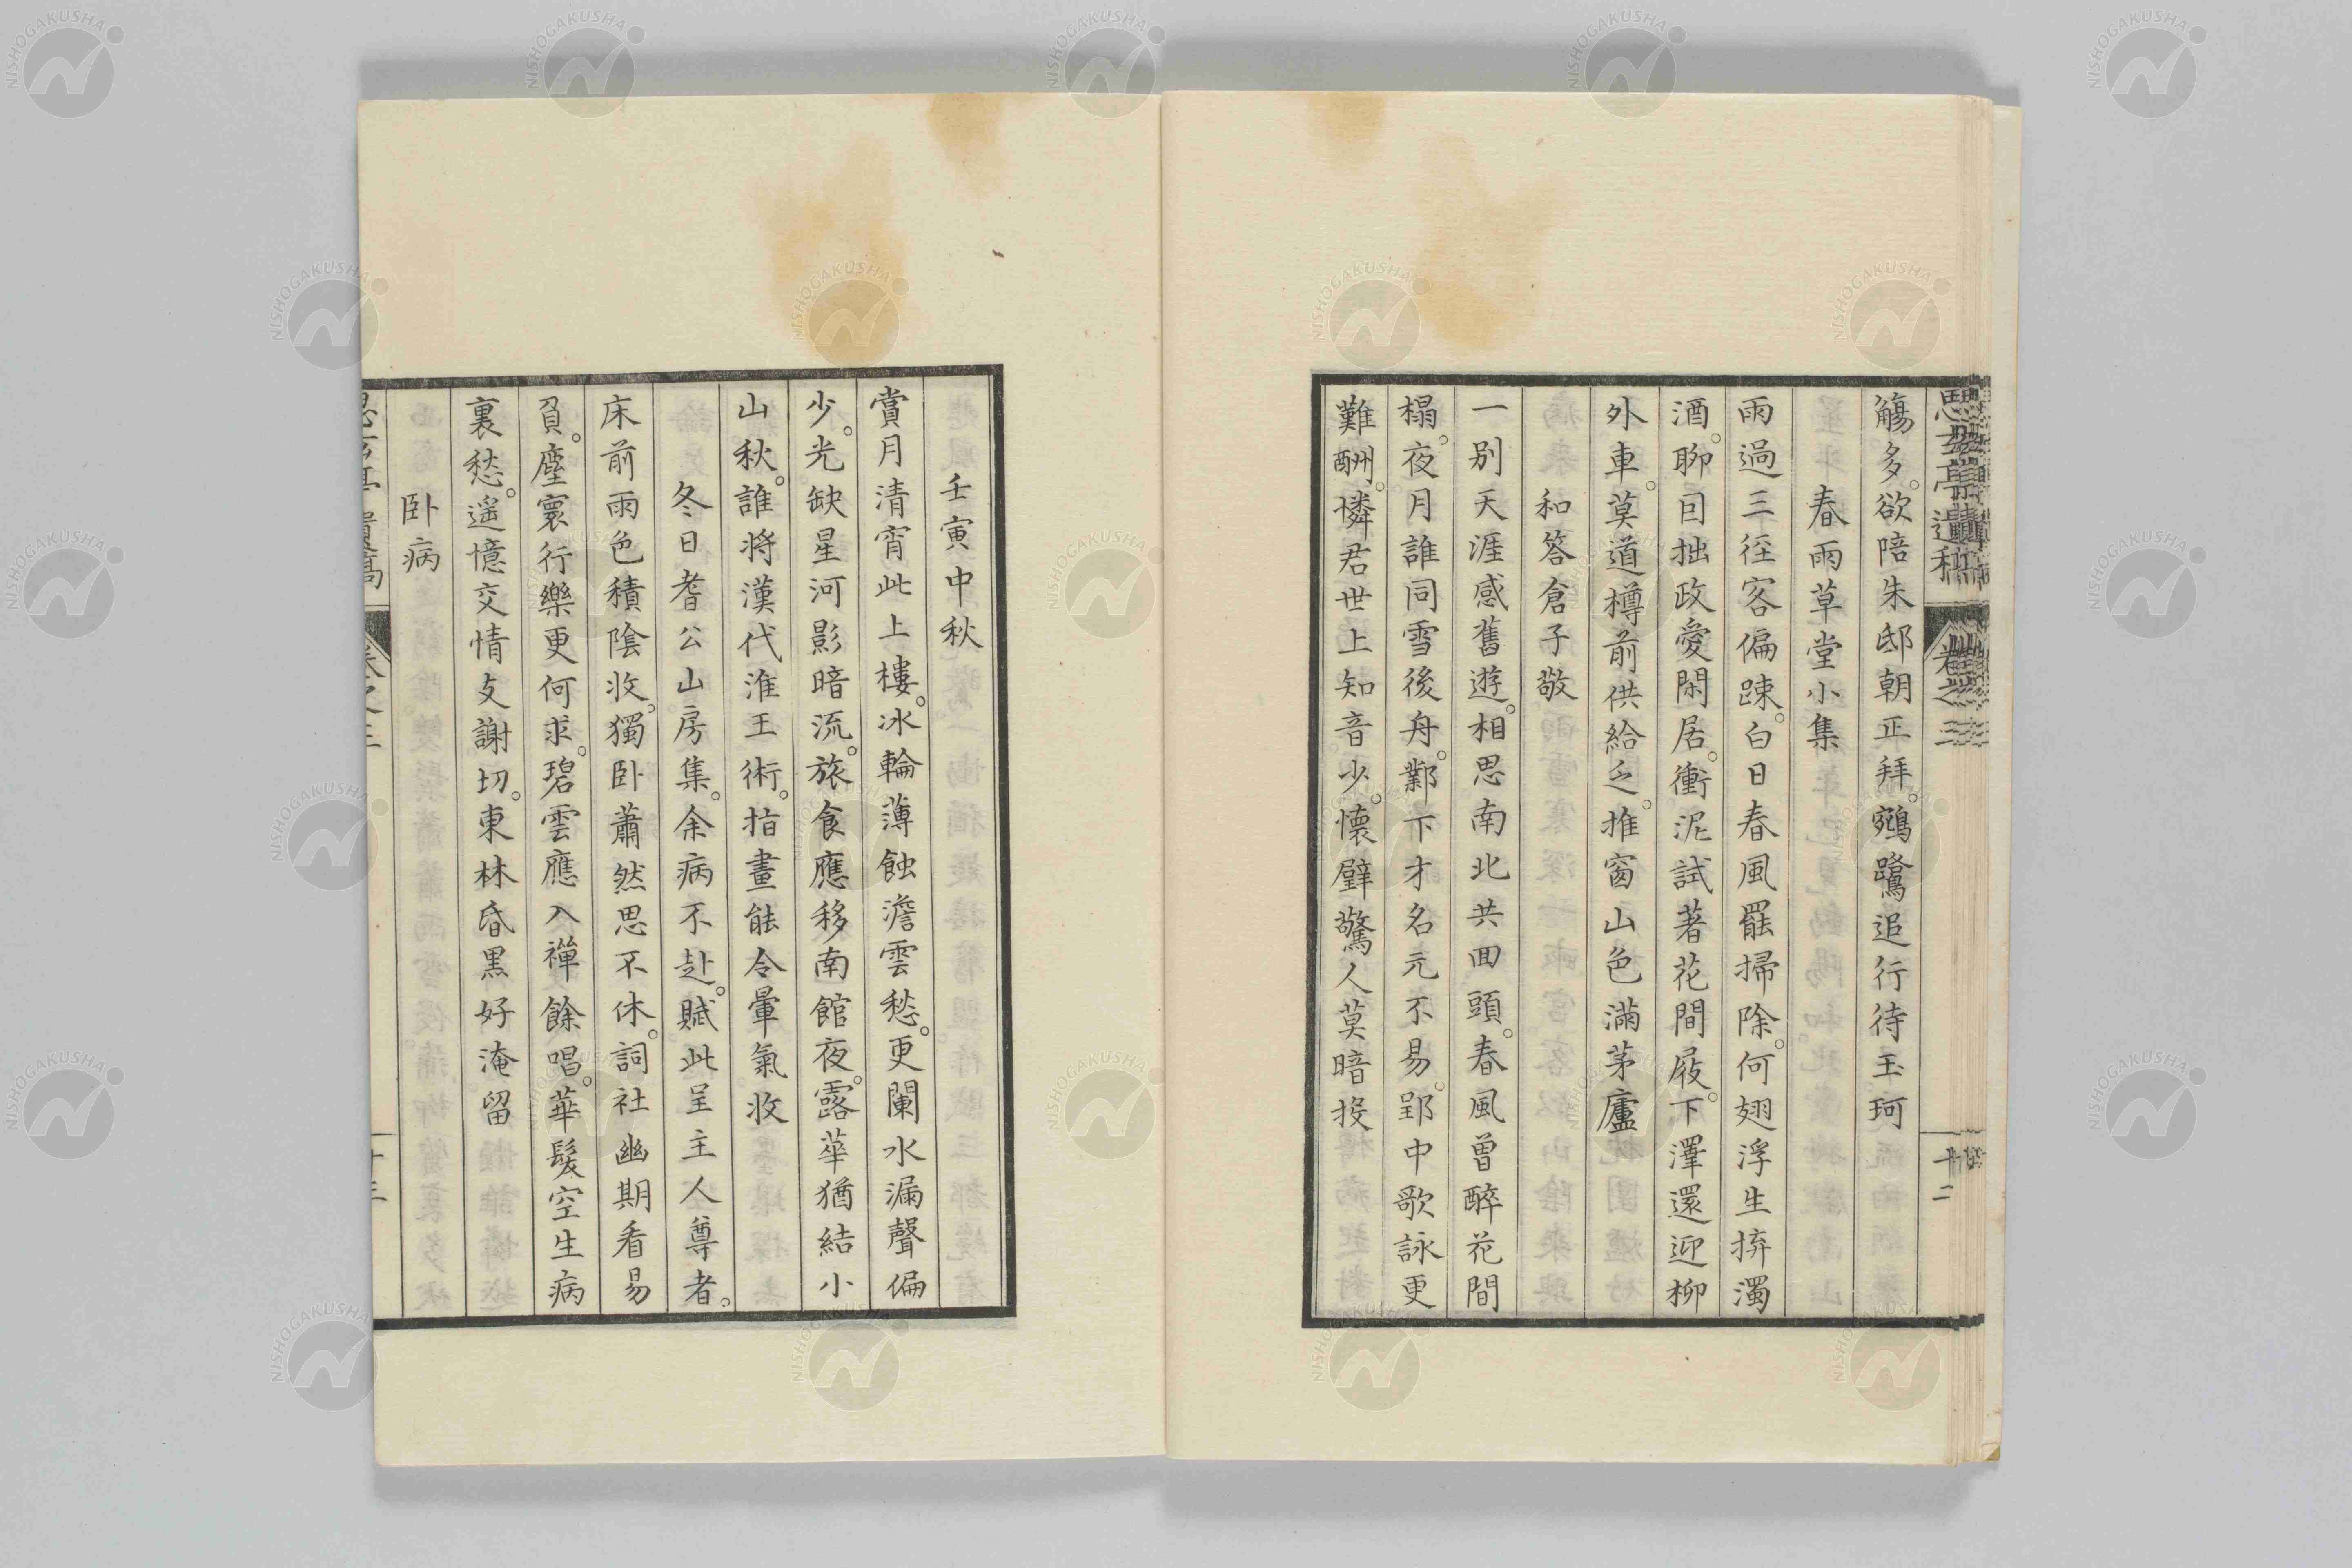 思玄亭遺稿 卷之三 十二
觴多。欲陪朱邸朝正拜。鵷鷺追行待玉珂
春雨草堂小集
雨過三徑客偏踈。白日春風罷掃除。何翅浮生拚濁
酒。聊因拙政愛閑居。衝泥試著花間屐。下澤還迎柳
外車。莫道樽前供給乏。推窗山色滿茅廬
和答倉子敬
一別天涯感舊遊。相思南北共回頭。春風曾醉花間
榻。夜月誰同雪後舟。鄴下才名元不易。郢中歌詠更
難酬。憐君世上知音少。懷璧驚人莫暗投
壬寅中秋
賞月清宵此上樓。冰輪薄蝕澹雲愁。更闌水漏聲偏
少。光缺星河影暗流。旅食應移南館夜。露華猶結小
山秋。誰將漢代淮王術。指畫能令暈氣收
冬日耆公山房集。余病不赴。賦此呈主人尊者。
床前雨色積陰收。獨臥蕭然思不休。詞社幽期看易
負。塵寰行樂更何求。碧雲應入禪餘唱。華髮空生病
裏愁。遥憶交情支謝切。東林昏黑好淹留
臥病